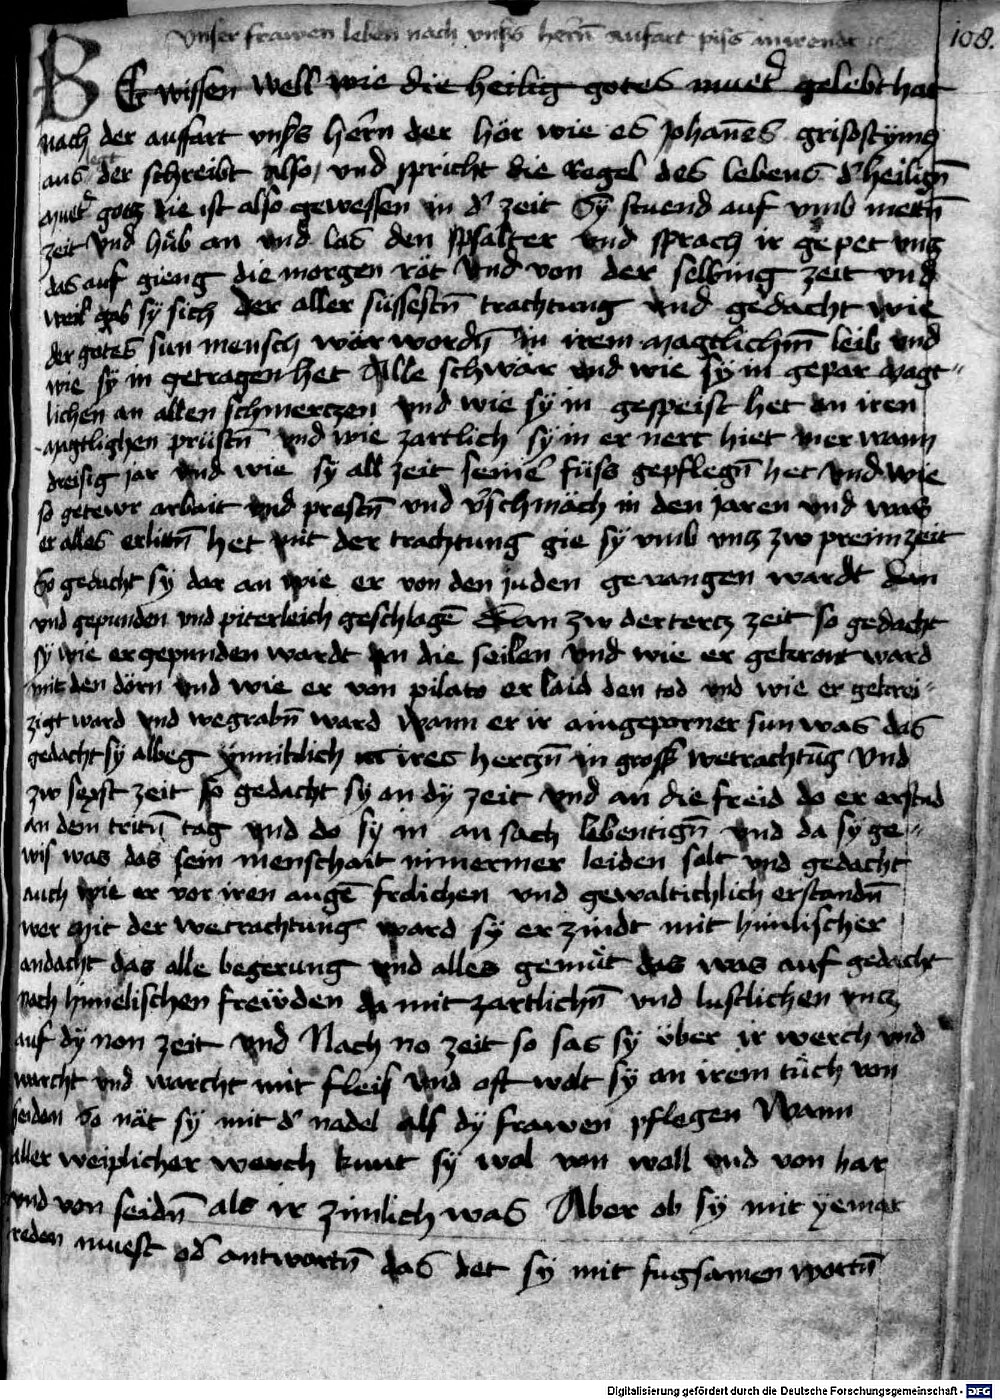 108.
Unser frawen leben nach unsers herrn auffart
BEr wissen well wie die heilig gotes mueter gelebt hat
nach der auffart vnsers herrn der hör wie es Johanes grisostimus
aus legt der schreibt also / vnd spricht die Regel des lebens der heilign
mueter gotz die ist also gewessen in der zeit Sy stuend auf vmb mettn
zeit vnd hüb an vnd las den psalter vnd sprach ir gepet vntz
das auf gieng die morgen röt vnd von der selbing zeit vnd
weil gab sy sich der aller süssestn trachtung vnd gedacht wie
der gotes sun mensch wär wordn in irem magtlichem leib vnd
wie sy in getragen het An alle schwär vnd wie sy in gepar magt=
lichen an allen schmerczen vnd wie sy in gespeist het an iren
magtlighen prüstn vnd wie zartlich sy in er nert hiet mer wann
dreisig jar vnd wie sy all zeit seiner füss gepflegn het vnd wie
so getewr arbait vnd prestn vnd verschmäch in den jaren vnd was
er alles erlittn het mit der trachtung gie sy vmb vntz zw preimzeit
So gedacht sy dar an wie er von den juden gevangen wardt dan
vnd gepunden vnd piterleich geschlagen Dan zw der tertz zeit so gedacht
sy wie er gepunden wardt an die seilen vnd wie er gekront ward
mit den dörn vnd wie er von pilato er laid den tod vnd wie er gekrei=
zigt ward vnd wegrabn ward Wann er ir aingeporner sun was das
gedacht sy albeg ynnitlich ires herczn in grosser wetrachtung Vnd
zw sext zeit so gedacht sy an dy zeit vnd an die freid do er erstund
an dem tritn tag vnd do sy in an sach lebentign vnd da sy ge=
wis was das sein menschait nimermer leiden solt vnd gedacht
auch wie er vor iren augen frolichen vnd gewaltichlich erstandn
wer mit der wetrachtung ward sy er zindt mit himlischer
andacht das alle begerung vnd alles gemüt das was auf gedacht
nach himelischen freüden da mit zartlichn vnd lustlichen vncz
auf dy non zeit vnd Nach no zeit so sas sy über ir werch vnd
warcht vnd warcht mit fleis vnd oft wolt sy an irem tüch von
seiden So nät sy mit der nadel als dy frawen pflegen Wann
aller weiplicher werch kunt sy wol von woll vnd von har
vnd von seidn als ir zimlich was Aber ob sy mit yemat
reden muest oder antwortn das det sy mit fugsamen wortn
Digitalisierung gefördert durch die Deutsche Forschungsgemeinschaft - DFG